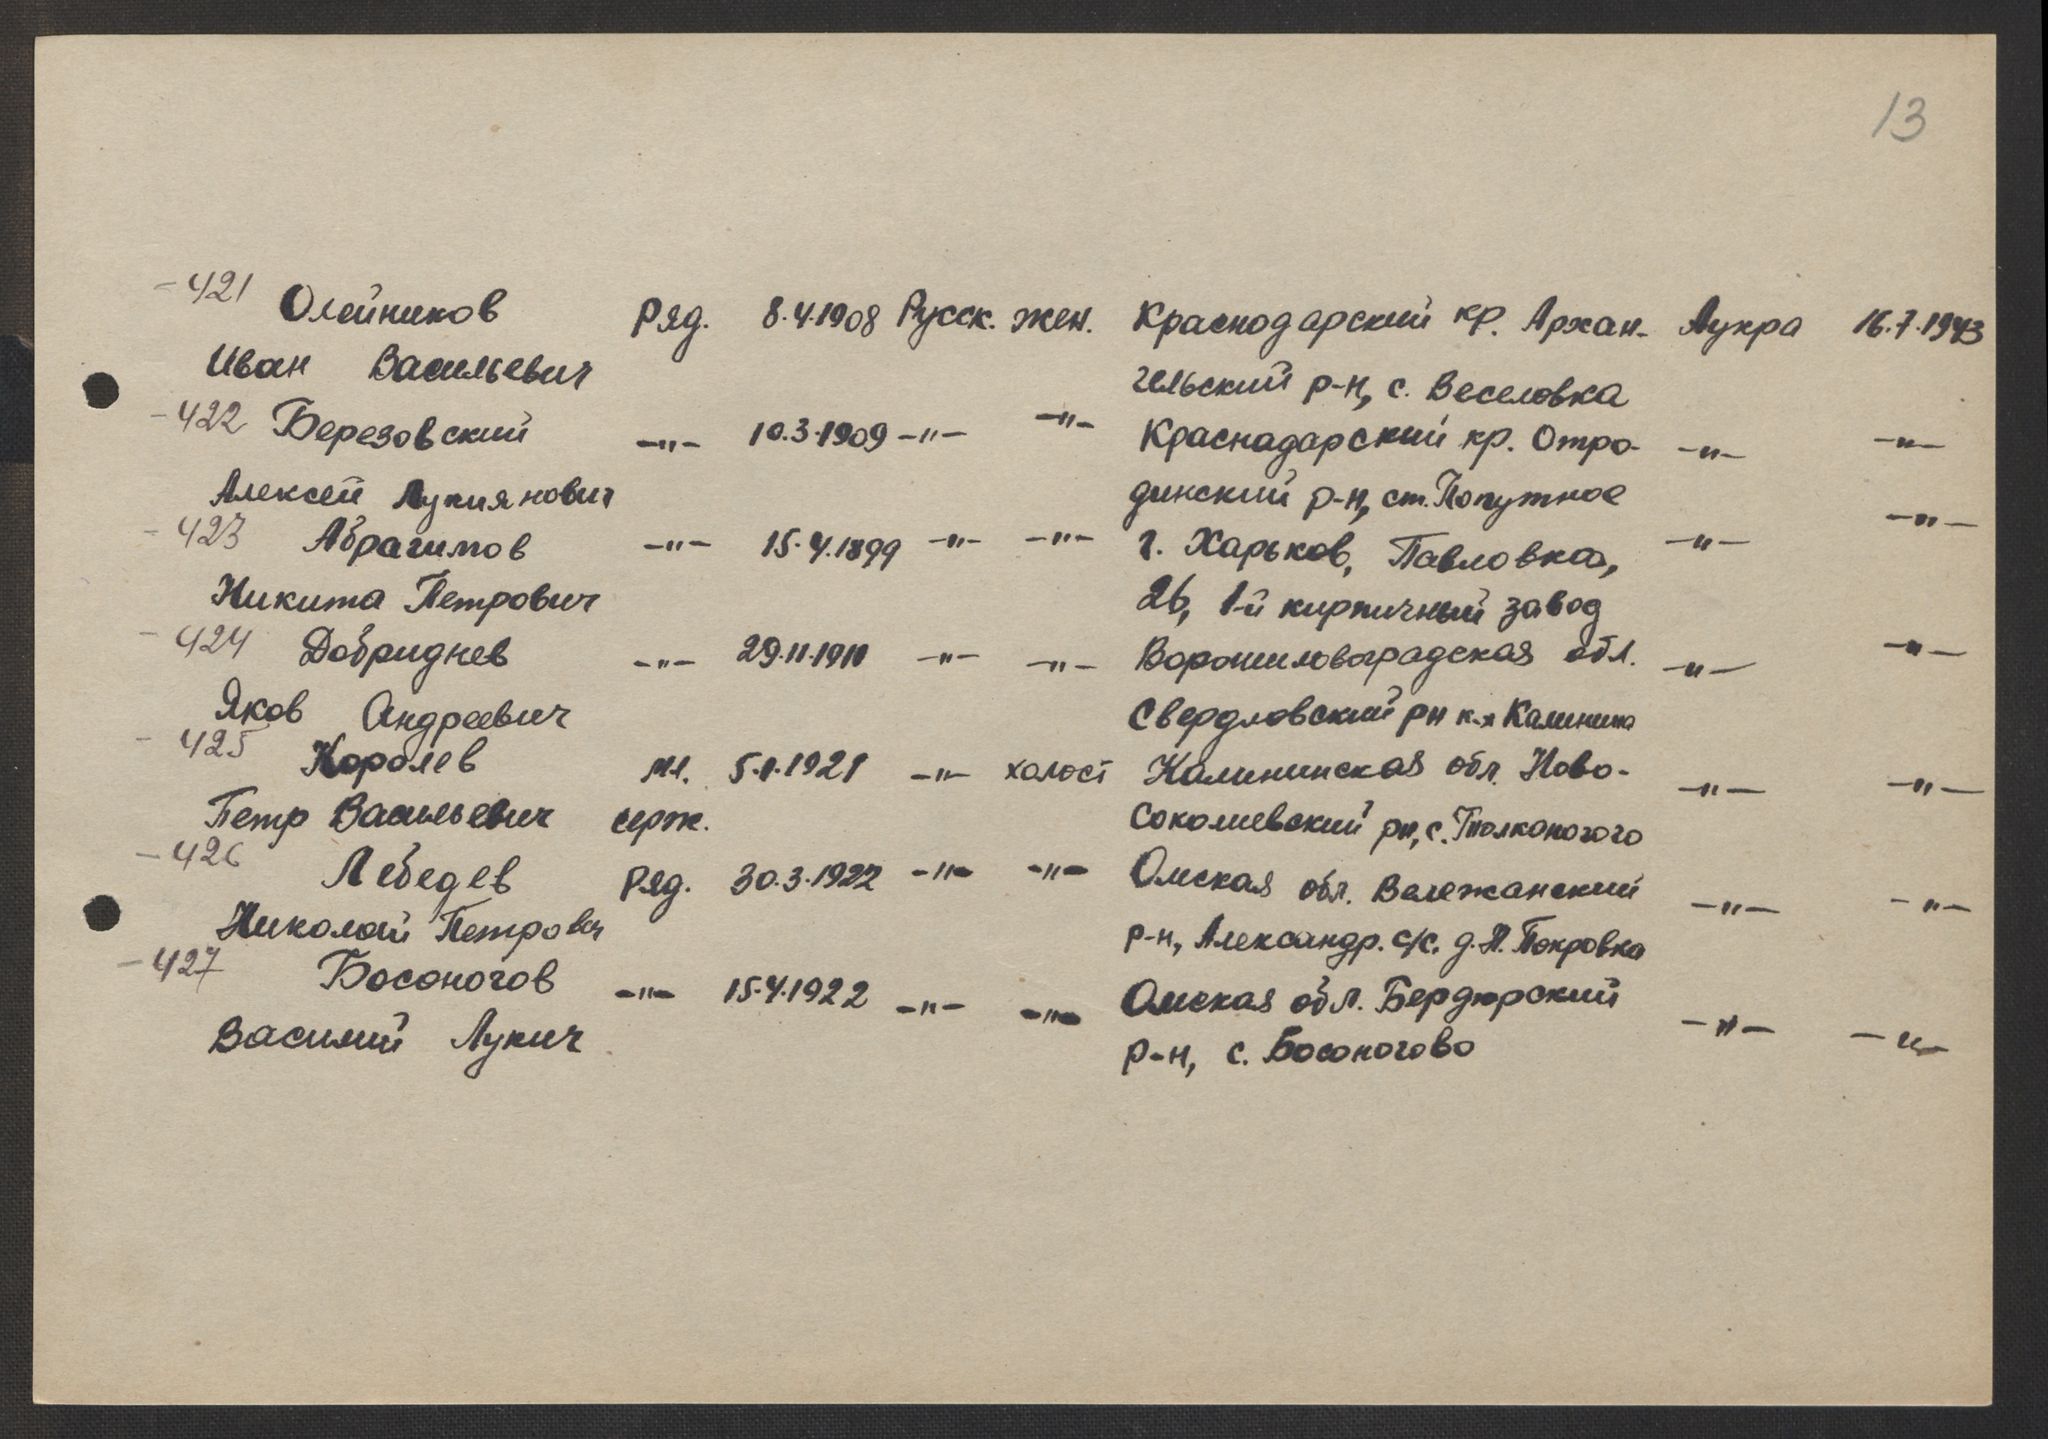 13
-421 Олейников Ряд. 8.4.1908 Русск. жен. Краснодарский кр. Архан- Аукра 16.7.1943
Иван Васильевич гельский р-н, с. Веселовка
-422 Березовский -"- 10.3.1909 -"- -"- Краснадарский кр. Отро- -"- -"-
Алексей Лукиянович динский р-н, ст. Попутное
-423 Абрагимов -"- 15.4.1899 -"- -"- г. Харьков, Павловка, -"- -"-
Никита Петрович 26, 1-й кирпичный завод
-424 Добриднев -"- 29.11.1910 -"- -"- Ворошиловоградская обл. -"- -"-
Яков Андреевич Свердловский рн к-з Калинина
-425 Королев мл. 5.1.1921 -"- холост Калининская обл. Ново- -"- -"-
Петр Васильевич серж. Соколиевский рн, с.
-426 Лебедев Ряд. 30.3.1922 -"- -"- Омская обл. Вележанский -"- -"-
Николай Петрович р-н, Александр. с/с. д. П. Покровка
-427 Босоногов -"- 15.4.1922 -"- -"- Омская обл. Бердюрский -"- -"-
Василий Лукич р-н, с. Босоногово